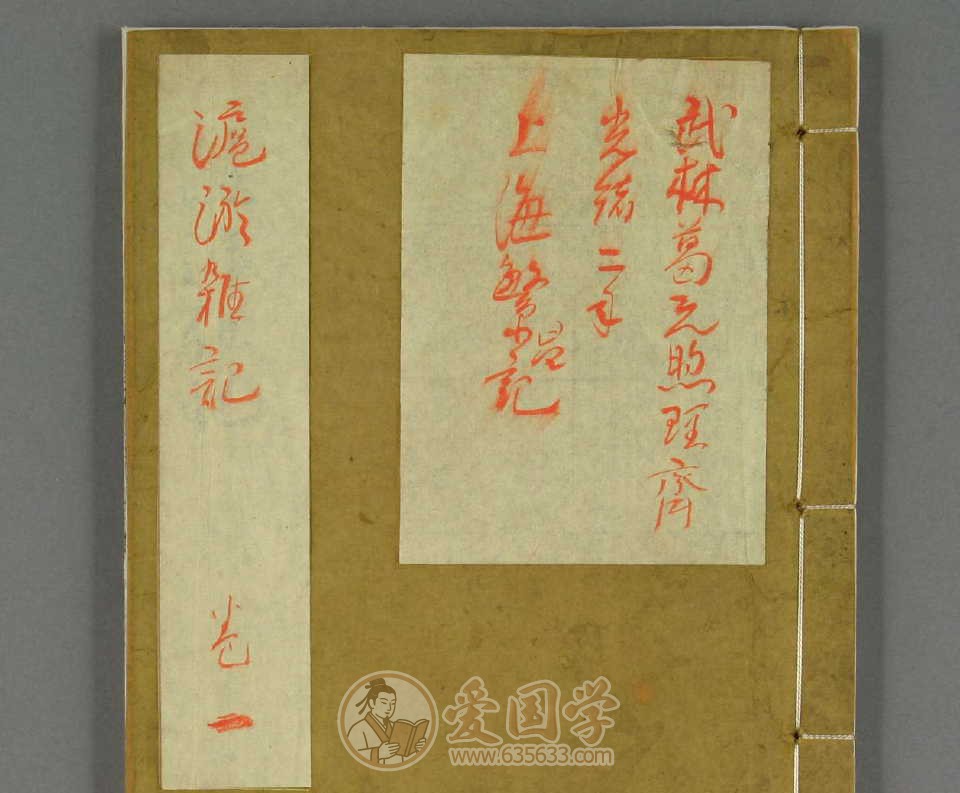 武林葛元煦理齋
光緒二年
上海繁昌記
滬游雜記 卷一
爱国学
www.635633.com